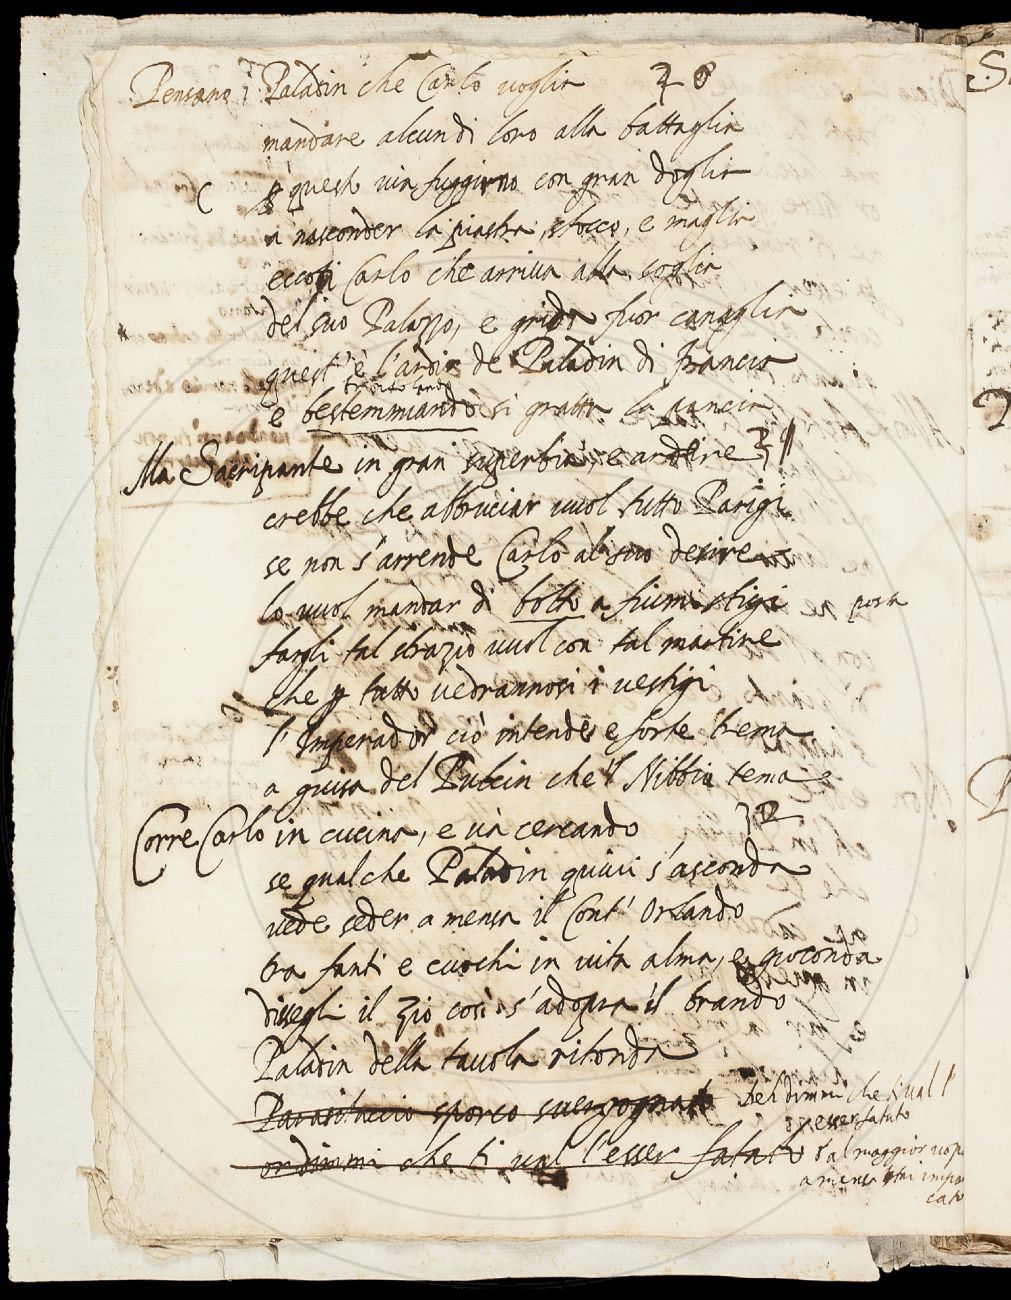 Pensano i Paladin che Carlo voglia
mandare alcun di loro alla battaglia
C e questi via fuggirno con gran doglia
a nasconder la piastra, stocco, e maglia
eccoti Carlo che arriva alla soglia
del suo Palazzo, e grida fuor canaglia
quest'è l'ardir de Paladin di francia
e bestemmiando si gratta la pancia
Ma Sacripante in gran superbia, e ardire 31
crebbe che abbruciar vuol tutto Parigi
se non s'arrende Carlo al suo desire
lo vuol mandar di botto a fiumi stigi posta
fargli tal strazio vuol con tal martire
che p tutto vedrannosi i vestigi
l'Imperador ciò intende e forte trema
a guisa del Pulcin che'l Nibbio tema
Corre Carlo in cucina, e và cercando 32
se qualche Paladin quivi s'asconda
vede seder a mensa il Cont' Orlando
tra fanti e cuochi in vita alma, e gioconda
dissegli il zio così s'adopra il brando
Paladin della tavola ritonda
Parasitaccio sporco svergognato deh dimmi che ti val l'
esser fatato
or dimmi che ti val l'esser fatato s'al maggior uopo
a mensa